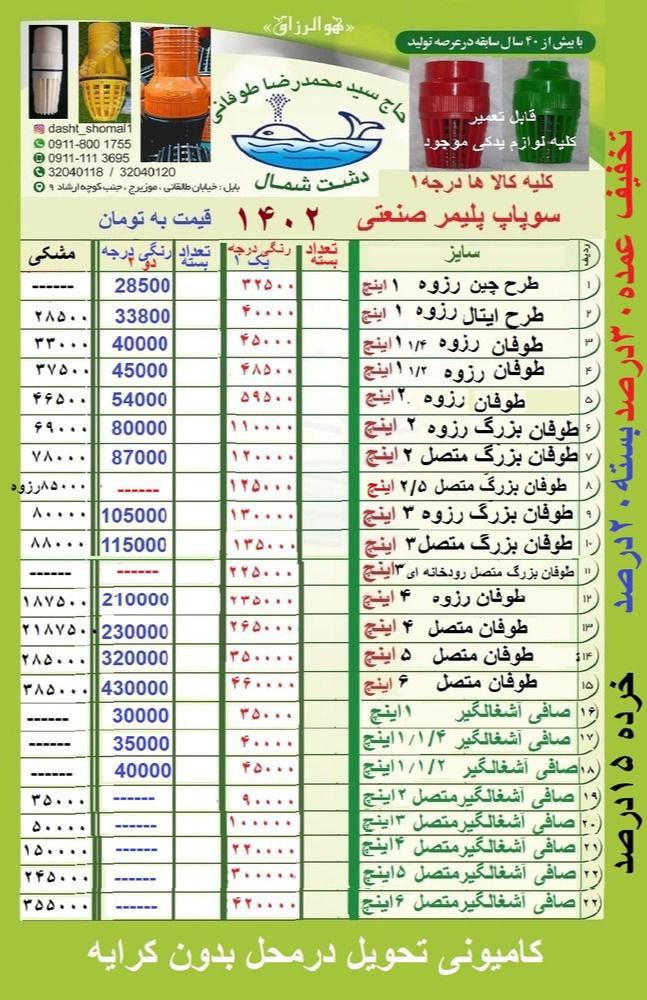 «هوالرزاق»
با بیش از ۴۰ سال سابقه در عرصه تولید
حاج سید محمدرضا طوفانی
دشت شمال
dasht_shomal1
0911-800 1755
0911-111 3695
32040118 / 32040120
بابل : خیابان طالقانی ، موزیرج ، جنب کوچه ارشاد ۹
قابل تعمیر
کلیه لوازم یدکی موجود
کلیه کالا ها درجه ۱
سوپاپ پلیمر صنعتی ۱۴۰۲ قیمت به تومان
ردیف سایز تعداد بسته رنگی درجه یک ۱ تعداد بسته رنگی درجه دو ۲ مشکی
۱ طرح چین رزوه ۱ اینچ ۳۲۵۰۰ 28500 ------
۲ طرح ایتال رزوه ۱ اینچ ۴۰۰۰۰ 33800 ۲۸۵۰۰
۳ طوفان رزوه ۱ ۱/۴ اینچ ۴۵۰۰۰ 40000 ۳۳۰۰۰
۴ طوفان رزوه ۱ ۱/۲ اینچ ۴۸۵۰۰ 45000 ۳۷۵۰۰
۵ طوفان رزوه ۲ اینچ ۵۹۵۰۰ 54000 ۴۶۵۰۰
۶ طوفان بزرگ رزوه ۲ اینچ ۱۱۰۰۰۰ 80000 ۶۹۰۰۰
۷ طوفان بزرگ متصل ۲ اینچ ۱۲۰۰۰۰ 87000 ۷۸۰۰۰
۸ طوفان بزرگ متصل ۲/۵ اینچ ۱۲۵۰۰۰ ------ ۸۵۰۰۰رزوه
۹ طوفان بزرگ رزوه ۳ اینچ ۱۳۰۰۰۰ 105000 ۸۰۰۰۰
۱۰ طوفان بزرگ متصل ۳ اینچ ۱۳۵۰۰۰ 115000 ۸۸۰۰۰
۱۱ طوفان بزرگ متصل رودخانه ای ۳ اینچ ۲۲۵۰۰۰ ------ ------
۱۲ طوفان رزوه ۴ اینچ ۲۳۵۰۰۰ 210000 ۱۸۷۵۰۰
۱۳ طوفان متصل ۴ اینچ ۲۶۵۰۰۰ 230000 ۲۱۸۷۵۰
۱۴ طوفان متصل ۵ اینچ ۳۵۰۰۰۰ 320000 ۲۸۵۰۰۰
۱۵ طوفان متصل ۶ اینچ ۴۶۰۰۰۰ 430000 ۳۸۵۰۰۰
۱۶ صافی آشغالگیر ۱ اینچ ۳۵۰۰۰ 30000 ------
۱۷ صافی آشغالگیر ۱/۱/۴ اینچ ۴۰۰۰۰ 35000 ------
۱۸ صافی آشغالگیر ۱/۱/۲ اینچ ۴۵۰۰۰ 40000 ------
۱۹ صافی آشغالگیرمتصل ۲ اینچ ۹۰۰۰۰ ------ ۳۵۰۰۰
۲۰ صافی آشغالگیرمتصل ۳ اینچ ۱۰۰۰۰۰ ------ ۵۰۰۰۰
۲۱ صافی آشغالگیرمتصل ۴ اینچ ۲۲۰۰۰۰ ------ ۱۵۰۰۰۰
۲۲ صافی آشغالگیرمتصل ۵ اینچ ۳۰۰۰۰۰ ------ ۲۴۵۰۰۰
۲۲ صافی آشغالگیرمتصل ۶ اینچ ۴۲۰۰۰۰ ------ ۳۵۵۰۰۰
تخفیف عمده ۳۰درصد بسته ۲۰درصد خرده ۱۵درصد
کامیونی تحویل درمحل بدون کرایه